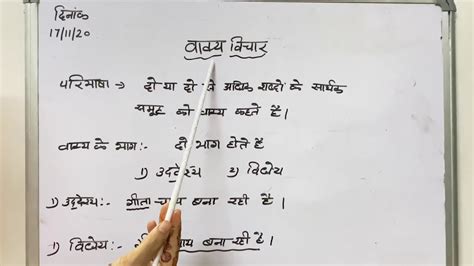 दिनांक
17/11/20
वाक्य विचार
परिभाषा → दो या दो से अधिक शब्दो के सार्थक
समूह को वाक्य कहते हैं।
वाक्य के भाग:- दो भाग होते हैं
1) उद्देश्य 2) विधेय
1) उद्देश्य:- गीता चाय बना रही है।
1) विधेय:- चाय बना रही है।